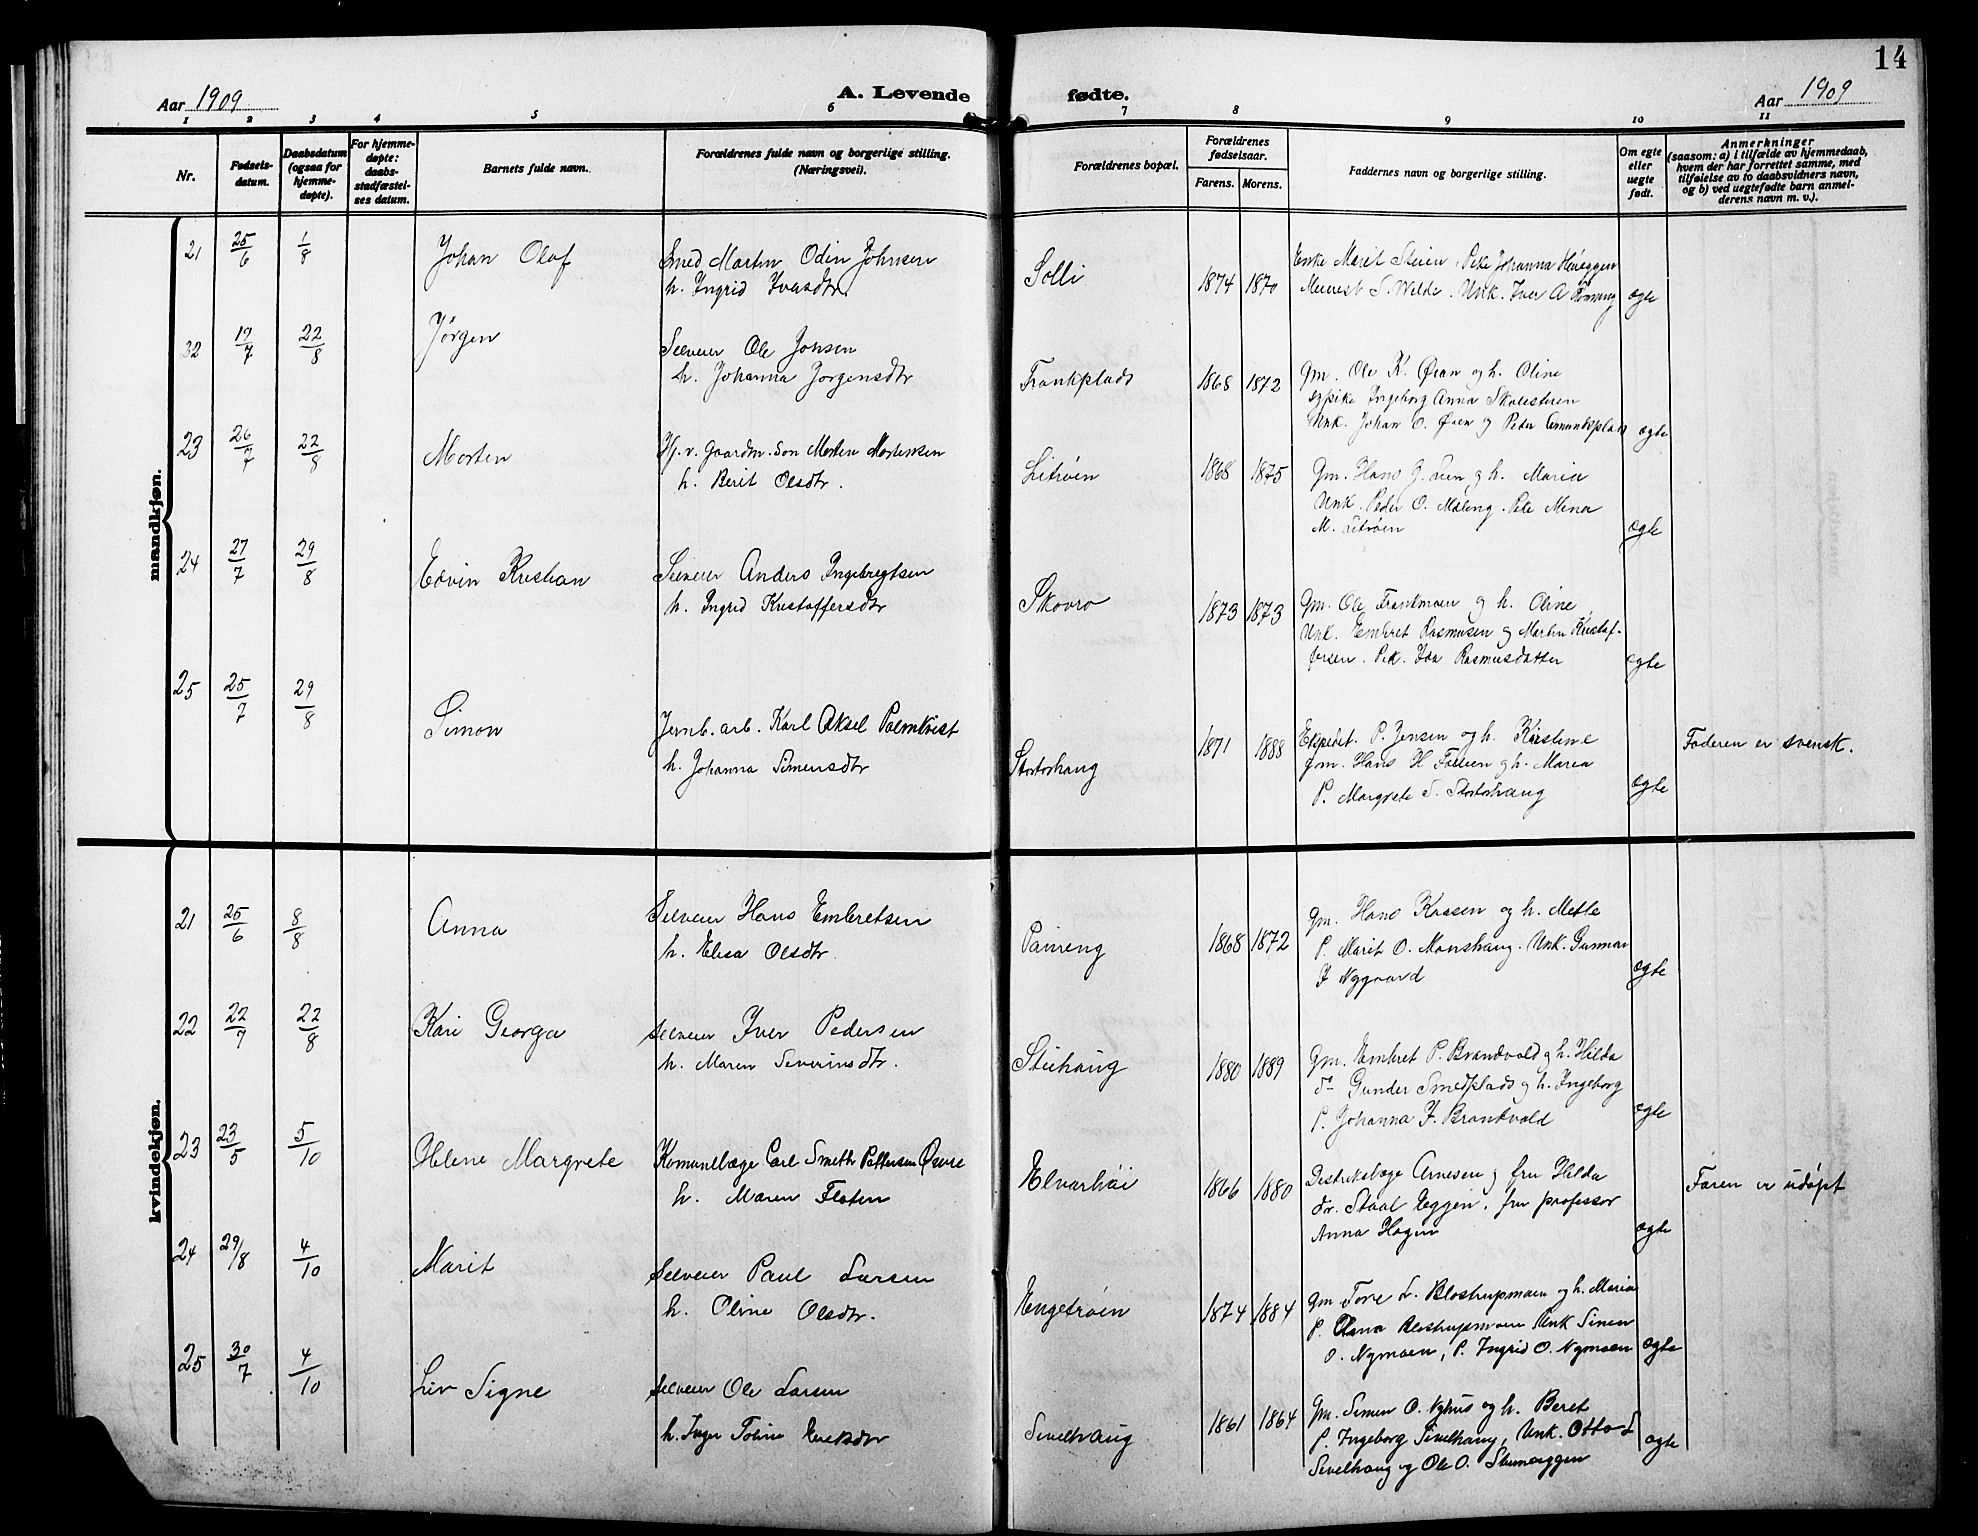 14
Aar 1909
A. Levende fødte.
Aar 1909
1 2 3 4 5 6 7 8 9 10 11
Nr.
Fødsels-
datum.
Daabsdatum
(ogsaa for
hjemme-
døpte).
For hjemme-
døpte:
daabs-
stadfæstel-
ses datum.
Barnets fulde navn.
Forældrenes fulde navn og borgerlige stilling.
(Næringsvei).
Forældrenes bopæl.
Forældrenes
fødselsaar.
Farens. Morens.
Faddernes navn og borgerlige stilling.
Om egte
eller
uegte
født.
Anmerkninger
(saasom: a) i tilfælde av hjemmedaab,
hvem der har forrettet samme, med
tilføielse av to daabsvidners navn,
og b) ved uegtefødte barn anmel-
derens navn m. v.).
mandkjøn.
21 25/6 1/8 Johan Olaf Smed Martin Odin Johnsen
h. Ingrid Ivarsdtr.
Solli 1874 1870 Enke Marit Steien. Pike Johanna
S. Wilde. Unk. Iver A
egte
32 19/7 22/8 Jørgen Selveier Ole Jonsen
h. Johanna Jørgensdtr
Trankplads 1868 1872 Gm. Ole K. Øien og h. Oline
Ingeborg Anna
Unk. Johan O. Øien og Peder
egte
23 26/7 22/8 Morten Hj.v. gaardm. søn Morten Mortensen
h. Berit Olsdtr.
Litrøen 1868 1875 Gm. Hans J. Lien og h. Maria
Unk. Peder O. Moleng. Pike Mina
M. Litrøen
egte
24 27/7 29/8 Edvin Kristian Selveier Anders Ingebregtsen
h. Ingrid Kristoffersdtr
Skovro 1873 1873 Gm. Ole Trankmoen og h. Oline
Unk. Embret Rasmusen og Martin Kristof-
fersen. Pik. Ida Rasmusdatter
egte
25 25/7 29/8 Simon Jernb. arb. Karl Aksel Palmkvist
h. Johanna Simensdtr
Stortorhaug 1871 1888 Ekpedit. P. Jensen og h. Kristine
gm. Hans H og h. Maria
P. Margrete S. Stortorhaug
egte
Faderen er svensk.
kvindekjøn.
21 25/6 8/8 Anna Selveier Hans Embretsen
h. Elisa Olsdtr.
1868 1872 Gm. Hans Kaasen og h. Mette
P. Marit O. Monshaug. Unk. Gunnar
J Nygaard
egte
22 22/7 22/8 Kari Georga selveier Iver Pedersen
h. Maren Severinsdtr.
Stuhaug 1880 1889 Gm. Embret P. Brandvold og h. Hilda
do Gunder Smedplads og h. Ingeborg
P. Johanna J. Brandvold
egte
23 23/5 5/10 Helene Margrete Komunelæge Carl Smeth Pettersen Øvre
h. Maren Floten
Elvarhøi 1866 1880 Distriktslæge Arnesen og fru Hilda
dr. Staal Eggen, fru professor
Anna Hagen
egte
Faren er udøpt
24 29/8 4/10 Marit Selveier Paul Larsen
h. Oline Olsdtr.
Engetrøen 1874 1884 Gm. Tore L. Blostrupmoen og h. Maria
P. Blostrupmoen Unk Simen
O. Nymoen, P. Ingrid O. Nymoen
egte
25 30/7 4/10 Liv Signe selveier Ole Larsen
h. Inger Toline
Sivilhaug 1861 1864 Gm. Simen O. Nyhus og h. Beret
P. Ingeborg Sivilhaug, Unk. Otto O
Sivilhaug og Ole O.
egte